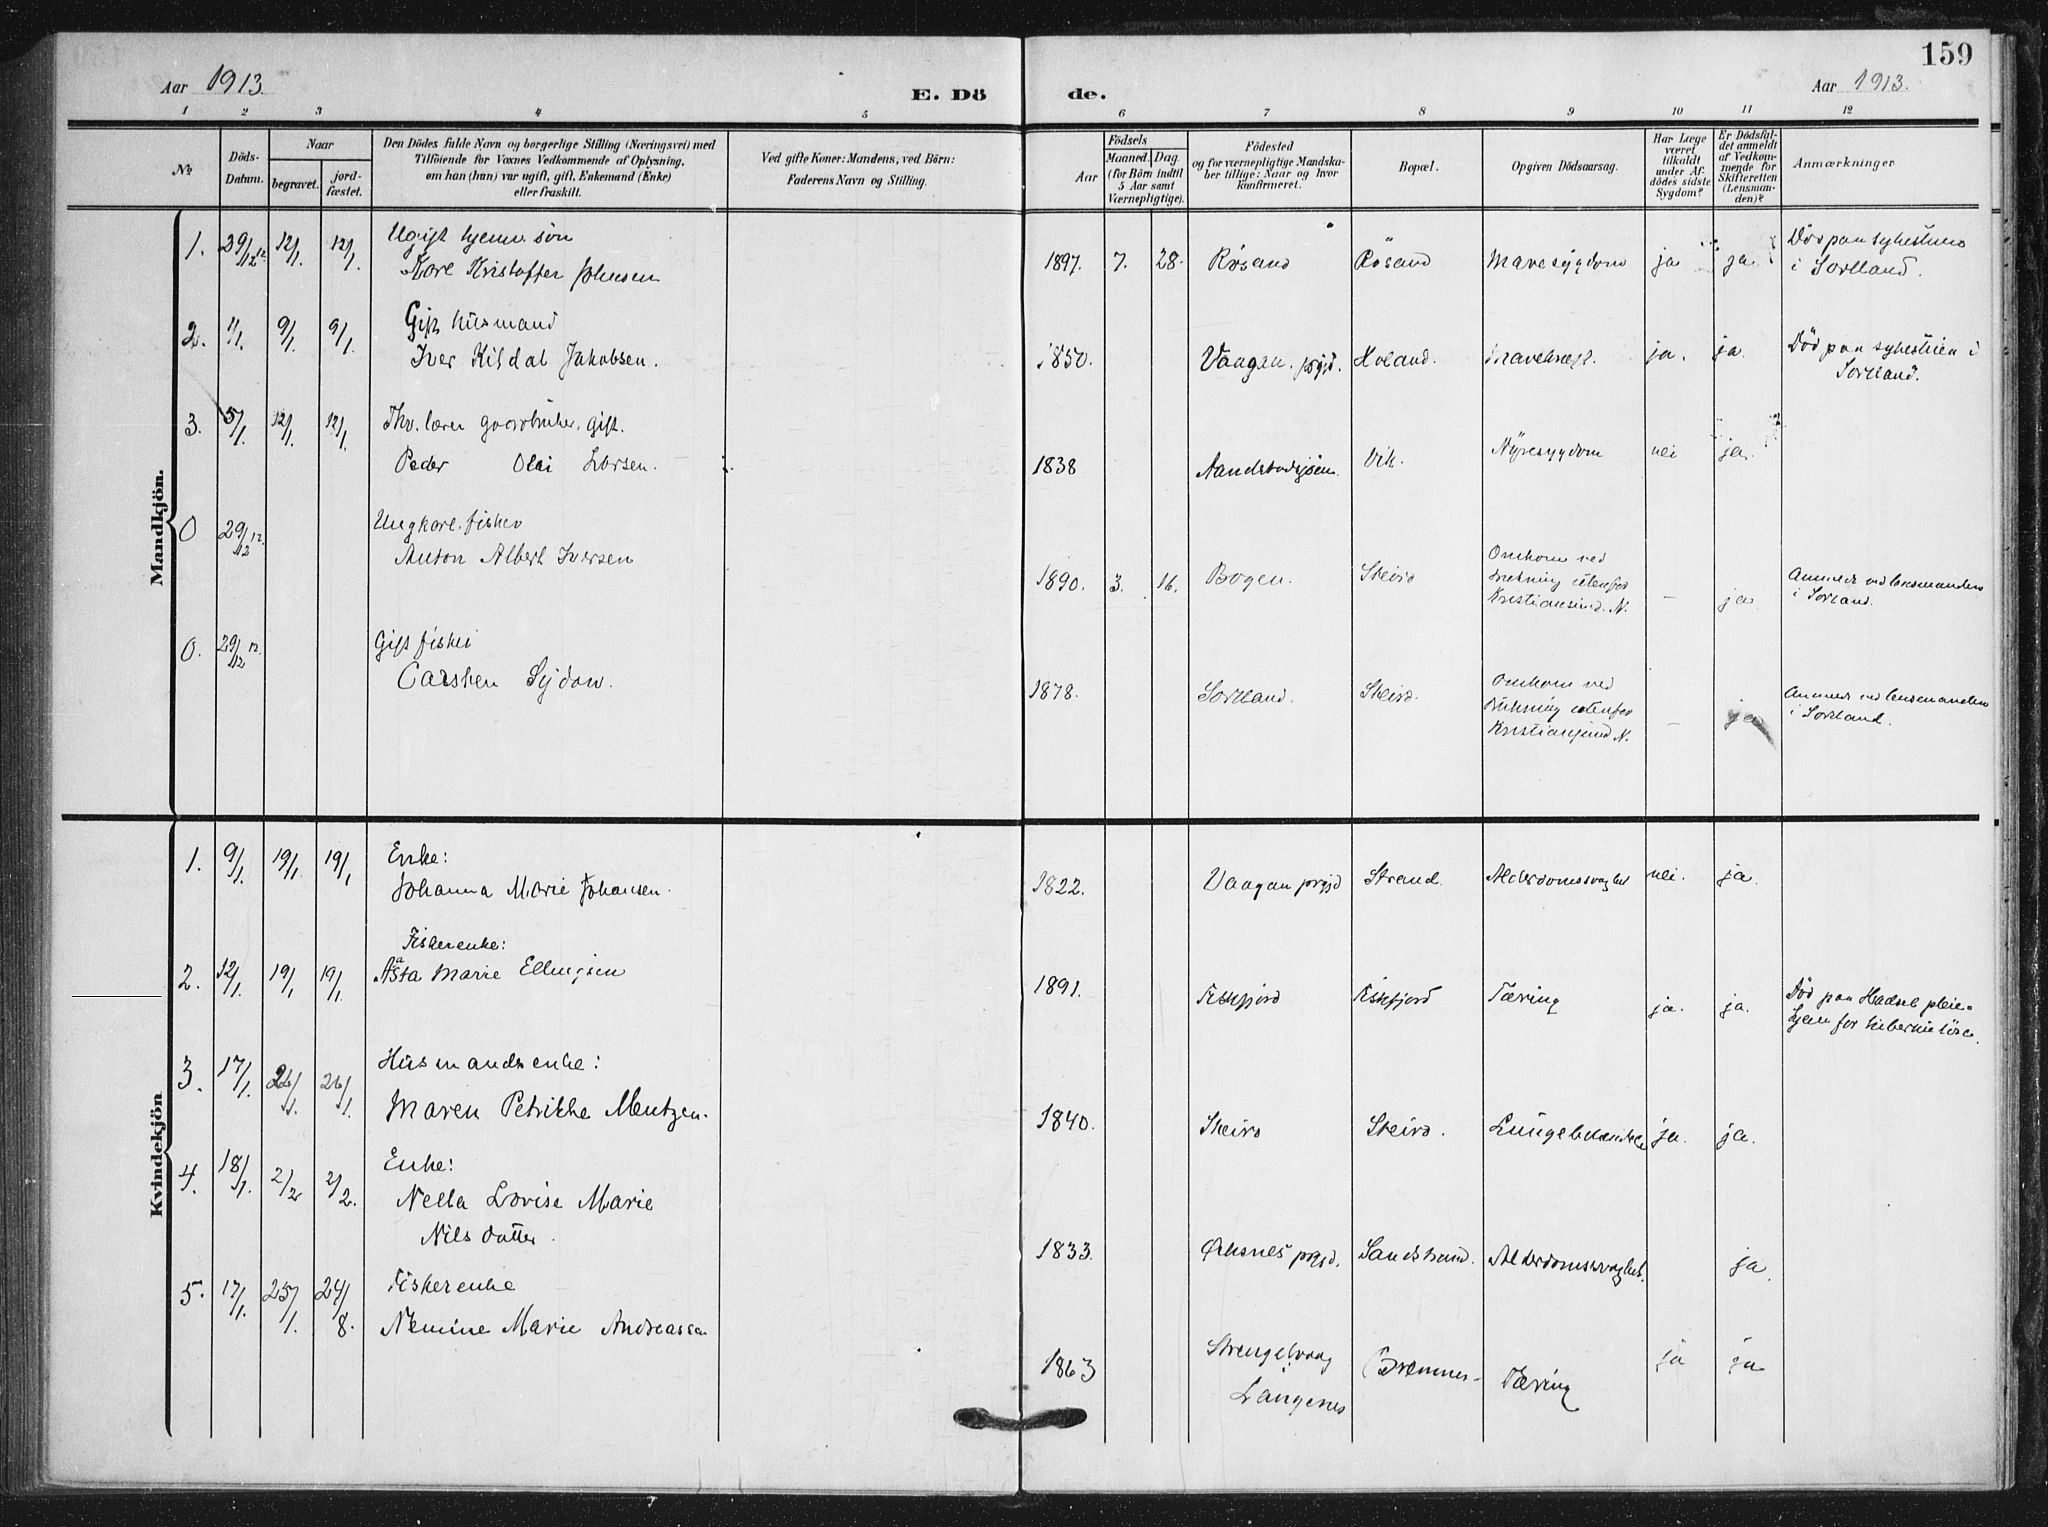 159
Aar 1913.
E. Dö
de.
Aar 1913.
1 2 3 4 5 6 7 8 9 10 11 12
№
Döds-
Datum.
Naar
begravet.
jord-
fæstet.
Den Dödes fulde Navn og borgerlige Stilling (Næringsvei) med
Tilföiende for Voxnes Vedkommende af Oplysning,
om han (hun) var ugift, gift, Enkemand (Enke)
eller fraskilt.
Ved gifte Koner: Mandens, ved Börn:
Faderens Navn og Stilling.
Födsels
Aar
Maaned. Dag.
(for Börn indtil
5 Aar samt
Værnepligtige).
Födested
og for værnepligtige Mandska-
ber tillige: Naar og hvor
konfirmeret.
Bopæl.
Opgiven Dödsaarsag.
Har Læge
været
tilkaldt
under Af-
dödes sidste
Sygdom?
Er Dödsfal-
det anmeldt
af Vedkom-
mende for
Skifteretten
(Lensman-
den)?
Anmærkninger
Mandkjön.
1. 29/12 12. 12/1. 12/1. Ugift hjemv. søn
Kore Kristoffer Johnsen
1897. 7. 28. Røsand Røsand Mavesygdom ja ja Död paa sykestuen
i Sortland.
2. 1/1. 9/1. 9/1. Gift husmand
Iver Kildal Jakobsen.
1850. Vaagen. prgjd. Holand. Mavekræft. ja. ja. Död paa sykestuen i
Sortland.
3. 5/1. 12/1. 12/1. Fhv. lærer gaardbruker. gift.
Peder Olai Larsen.
1838 Sandstadsjøen. Vik. Nyresygdom nei ja.
0 29/12 12. Ungkarl. fisker
Anton Albert Iversen
1890. 3. 16. Bogen. Steiro Omkom ved
drukning utenfor
Kristiansund. N. – ja Anmeldt ved lensmanden
i Sortland.
0. 29/12 12. Gift fisker
Carsten Sydow.
1878. Sortland. Steiro. Omkom ved
drukning utenfor
Kristiansund N. – ja Anmeldt ved lensmanden
i Sortland.
Kvindekjön
1. 9/1. 19/1. 19/1 Enke:
Johanna Marie Johansen.
1822. Vaagan prgjd Strand. Alderdomssvaghet nei. ja.
2. 12/1. 19/1 19/1. Fiskerenke:
Aasta Marie Ellingsen
1891. Fiskfjord Fiskfjord Tæring ja. ja. Död paa Hadsel pleie-
hjem for tuberkuløse.
3. 17/1. 26/1. 26/1. Husmandsenke:
Maren Petrikke Mentzen.
1840. Steiro Steiro. Lungebetændelse ja. ja.
4. 18/1. 2/2 2/2. Enke:
Nella Lovise Marie
Nilsdatter.
1833. Øksnes prgjd. Sandstrand. Alderdomssvaghet. ja.
5. 17/1. 25/1. 24/8. Fiskerenke
Nemine Marie Andreassen
1863 Strengelvaag
i
Langenes Bremnes. Tæring ja ja